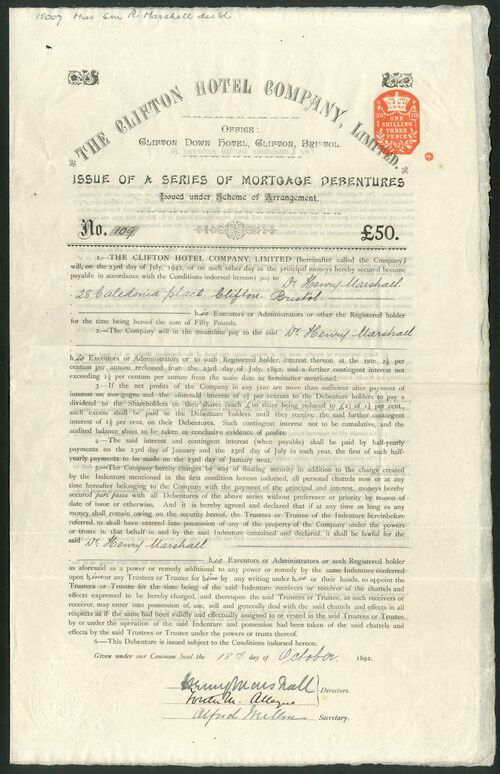 15007 Miss Em R. Marshall decd
THE CLIFTON HOTEL COMPANY, LIMITED.
OFFICE:
CLIFTON DOWN HOTEL, CLIFTON, BRISTOL.
ONE
SHILLING
THREE
PENCE
ISSUE OF A SERIES OF MORTGAGE DEBENTURES
Issued under Scheme of Arrangement.
No. 109 £50.
1.—THE CLIFTON HOTEL COMPANY, LIMITED (hereinafter called the Company)
will, on the 23rd day of July, 1942, or on such other day as the principal moneys hereby secured become
payable in accordance with the Conditions indorsed hereon) pay to Dr Henry Marshall
28 Caledonia place Clifton Bristol.
his Executors or Administrators or other the Registered holder
for the time being hereof the sum of Fifty Pounds.
2.—The Company will in the meantime pay to the said Dr. Henry Marshall
his Executors or Administrators or to such Registered holder interest thereon at the rate 2½ per
centum per annum reckoned from the 23rd day of July, 1892, and a further contingent interest not
exceeding 1½ per centum per annum from the same date as hereinafter mentioned.
3.—If the net profits of the Company in any year are more than sufficient after payment of
interest on mortgages and the aforesaid interest of 2½ per centum to the Debenture holders to pay a
dividend to the Shareholders on their shares (each £10 share being reduced to £2) of 1½ per cent.,
such excess shall be paid to the Debenture holders until they receive the said further contingent
interest of 1½ per cent. on their Debentures. Such contingent interest not to be cumulative, and the
audited balance sheet to be taken as conclusive evidence of profits.
4.—The said interest and contingent interest (when payable) shall be paid by half-yearly
payments on the 23rd day of January and the 23rd day of July in each year, the first of such half-
yearly payments to be made on the 23rd day of January next.
5.—The Company hereby charges by way of floating security in addition to the charge created
by the Indenture mentioned in the first condition hereon indorsed, all personal chattels now or at any
time hereafter belonging to the Company with the payment of the principal and interest, moneys hereby
secured pari passu with all Debentures of the above series without preference or priority by reason of
date of issue or otherwise. And it is hereby agreed and declared that if at any time so long as any
money shall remain owing on the security hereof, the Trustees or Trustee of the Indenture hereinbefore
referred to shall have entered into possession of any of the property of the Company under the powers
or trusts in that behalf in and by the said Indenture contained and declared, it shall be lawful for the
said Dr. Henry Marshall
his Executors or Administrators or such Registered holder
as aforesaid as a power or remedy additional to any power or remedy by the same Indenture conferred
upon him or any Trustees or Trustee for him by any writing under his or their hands, to appoint the
Trustees or Trustee for the time being of the said Indenture receivers or receiver of the chattels and
effects expressed to be hereby charged, and thereupon the said Trustees or Trustee, as such receivers or
receiver, may enter into possession of, use, sell and generally deal with the said chattels and effects in all
respects as if the same had been validly and effectually assigned to or vested in the said Trustees or Trustee
by or under the operation of the said Indenture and possession had been taken of the said chattels and
effects by the said Trustees or Trustee under the powers or trusts thereof.
6.—This Debenture is issued subject to the Conditions indorsed hereon.
Given under our Common Seal the 18th day of October 1892.
Henry Marshall
Directors.
Alfred
Secretary.